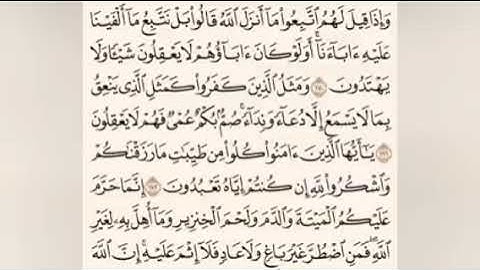 وَإِذَا قِيلَ لَهُمُ اتَّبِعُوا مَا أَنزَلَ اللَّهُ قَالُوا بَلْ نَتَّبِعُ مَا أَلْفَيْنَا
عَلَيْهِ ءَابَاءَنَا أَوَلَوْ كَانَ ءَابَاؤُهُمْ لَا يَعْقِلُونَ شَيْئًا وَلَا
يَهْتَدُونَ ۝١٧٠ وَمَثَلُ الَّذِينَ كَفَرُوا كَمَثَلِ الَّذِي يَنْعِقُ
بِمَا لَا يَسْمَعُ إِلَّا دُعَاءً وَنِدَاءً صُمٌّ بُكْمٌ عُمْيٌ فَهُمْ لَا يَعْقِلُونَ
۝١٧١ يَٰأَيُّهَا الَّذِينَ ءَامَنُوا كُلُوا مِن طَيِّبَٰتِ مَا رَزَقْنَٰكُمْ
وَاشْكُرُوا لِلَّهِ إِن كُنتُمْ إِيَّاهُ تَعْبُدُونَ ۝١٧٢ إِنَّمَا حَرَّمَ
عَلَيْكُمُ الْمَيْتَةَ وَالدَّمَ وَلَحْمَ الْخِنزِيرِ وَمَا أُهِلَّ بِهِ لِغَيْرِ
اللَّهِ فَمَنِ اضْطُرَّ غَيْرَ بَاغٍ وَلَا عَادٍ فَلَا إِثْمَ عَلَيْهِ إِنَّ اللَّهَ